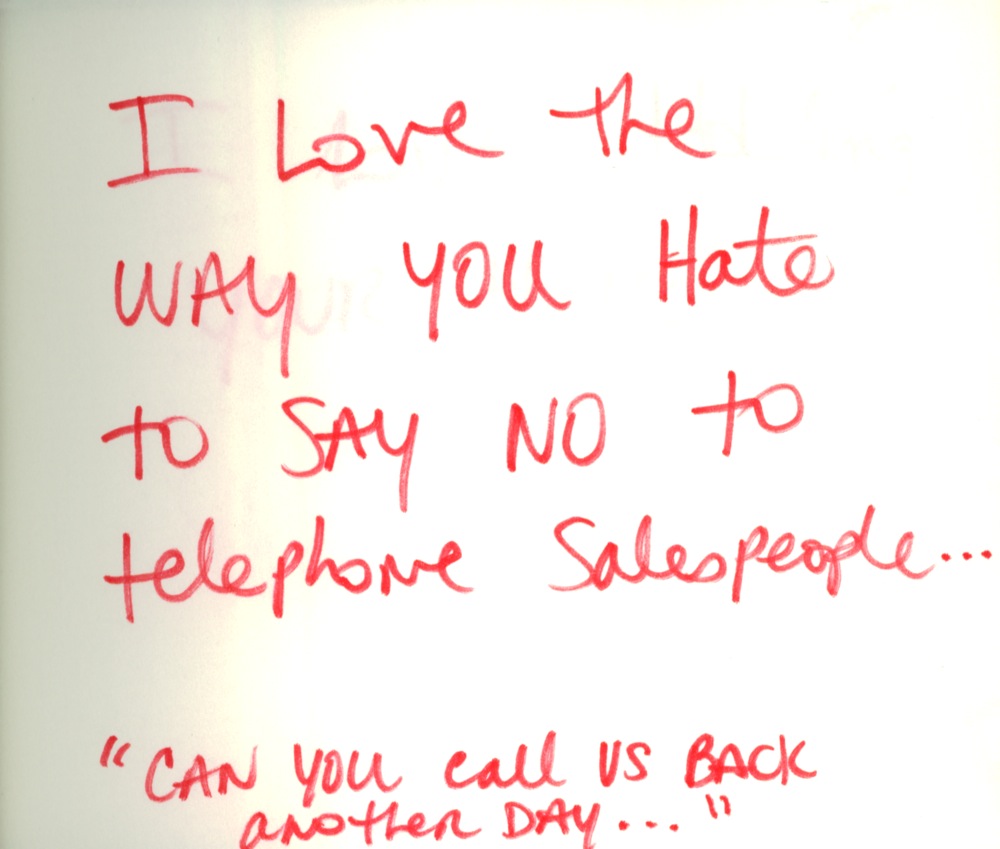 I Love the
WAY YOU Hate
to SAY NO to
telephone Salespeople...
"CAN YOU call US BACK
another DAY..."